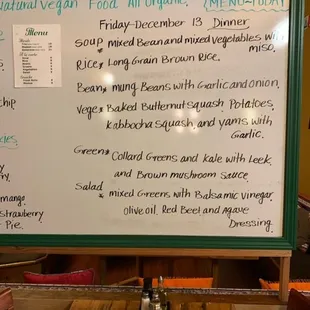 Natural Vegan Food All Organic. {MENU-TODAY}
Menu
Friday-December 13 Dinner
Soup * mixed Bean and mixed Vegetables with
miso.
Rice * Long Grain Brown Rice.
Bean * mung Beans with Garlic and onion,
Vege * Baked Butternut Squash Potatoes,
Kabbocha Squash and yams with
Garlic.
Green * Collard Greens and Kale with Leek
and Brown mushroom Sauce
Salad
* mixed Greens with Balsamic vinegar
olive oil, Red Beet and Agave
Dressing.
mango
Strawberry
Pie.